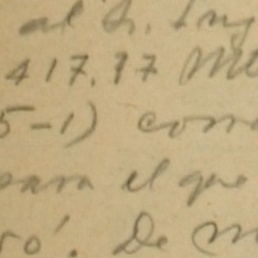 al S. Ing
417.97 Me
5-1) com
para el que
ro'. De m